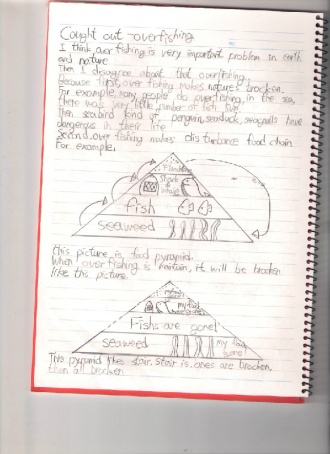 Caught out - overfishing
I think over fishing is very important problem in earth
and nature
Then I disagree about that overfishing.
Because first, over fishing makes nature's brocken.
For example, many people do overfishing, in the sea,
there was very little number of fish swim.
Then seabird kind of penguin, seaduck, seagulls have
dangerous in their life
Second, over fishing makes disturbance food chain
For example,
Shark &
fish
seaweed
this picture is food pyramid.
When over fishing is maintain, it will be brocken
like this picture.
my food
Fishs are gone!
seaweed
my
gone!
This pyramid likes stair. Stair is ones are brocken,
than all brocken